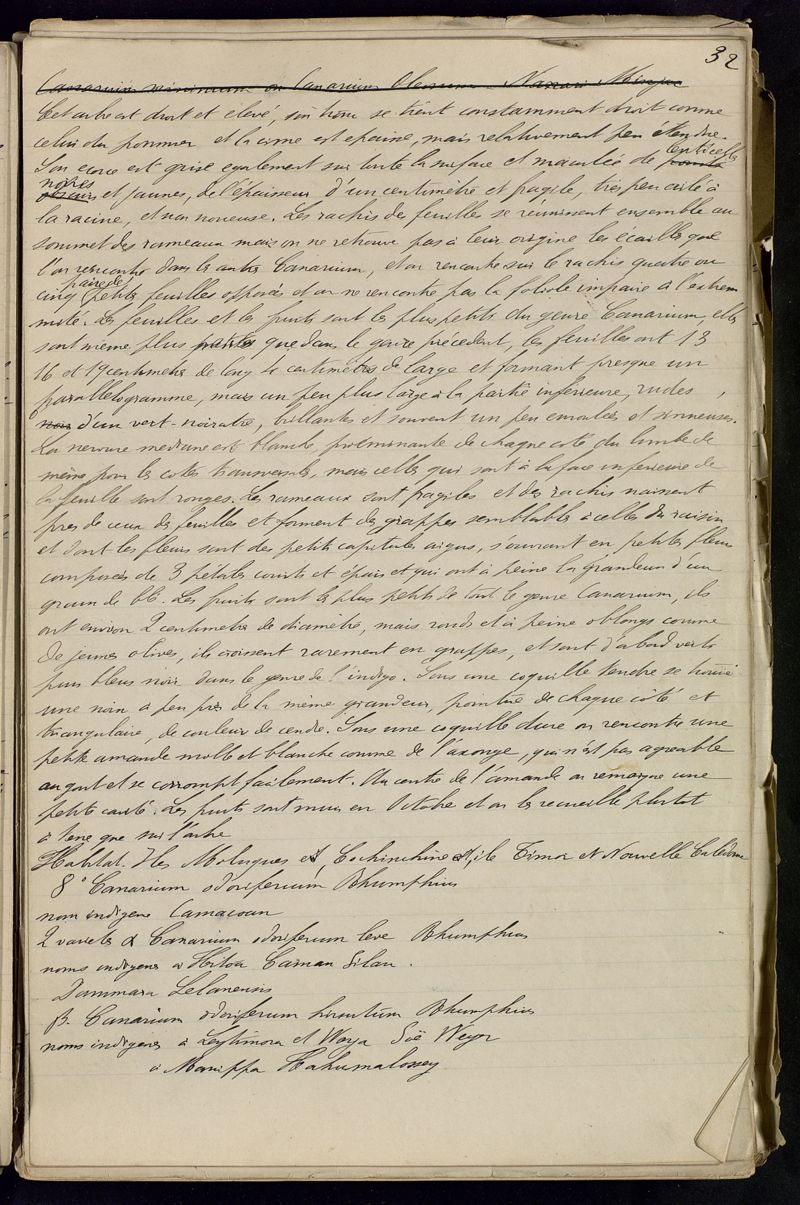 32
Canarium minimum ou Canarium Oleosum Nanari Minjac
Cet arbre est droit et élevé, son tronc se tient constamment droit comme
celui du pommier et la cime est épaisse, mais relativement peu étendue.
Son ecorce est grise egalement sur toute la surface et maculée de points lenticelles
obscurs noires et jaunes, de l'épaisseur d'un centimètre et fragile, très peu ailé à
la racine, et non noueuse. Les rachis des feuilles se réunissent ensemble au
sommet des rameaux mais on ne retrouve pas à leur origine les écailles que
l'on rencontre dans les autres Canarium, et on rencontre sur le rachis quatre ou
cinq paire de petites feuilles opposées et on ne rencontre pas la foliole impaire à l'extrem
mité. Les feuilles et les fruits sont les plus petits du genre Canarium, elles
sont même plus petites que dans le genre précédent, les feuilles ont 13
16 et 17 centimètres de long 4 centimètres de large et formant presque un
parallelogramme, mais un peu plus large à la partie inferieure, rudes,
mais d'un vert-noiratre, brillantes et souvent un peu enroulées et sinueuses.
La nervure mediane est blanche, proéminante de chaque coté du limbe de
même pour les cotes transversales, mais celles qui sont à la face inferieure de
la feuille sont rouges. Les rameaux sont fragiles et des rachis naissent
près de ceux des feuilles et forment des grappes semblables à celles du raisin
et dont les fleurs sont des petits capitules aigus, s'ouvrant en petites fleurs
composées de 3 pétales courts et épais et qui ont à peine la grandeur d'un
grain de blé. Les fruits sont les plus petits de tout le genre Canarium, ils
ont environ 2 centimetres de diamètre, mais ronds et à peine oblongs comme
de jeunes olives, ils croissent rarement en grappes, et sont d'abord verts
puis bleus noir dans le genre de l'indigo. Sous une coquille tendre se trouve
une noix à peu près de la même grandeur, pointue de chaque côté et
triangulaire, de couleur de cendre. Sous une coquille dure on rencontre une
petite amande molle et blanche comme de l'axonge, qui n'est pas agreable
au gout et se corrompt facilement. Au centre de l'amande on remarque une
petite cavité. Les fruits sont murs en Octobre et on les recueille plutot
à terre que sur l'arbre
Habitat. Iles Moluques et, Cochinchine et, ile Timor et Nouvelle Calédonie
8° Canarium odoriferum Rhumphius
nom indigene Camacoan
2 varietés α Canarium odoriferum leve Rhumphius
noms indigenes à Hitoa Caman Silan.
Dammara Selanensis
β. Canarium odoriferum hirsutum Rhumphius
noms indigenes à Leytimora et Waya Soë Weyer
à Manippa Hahumalossey